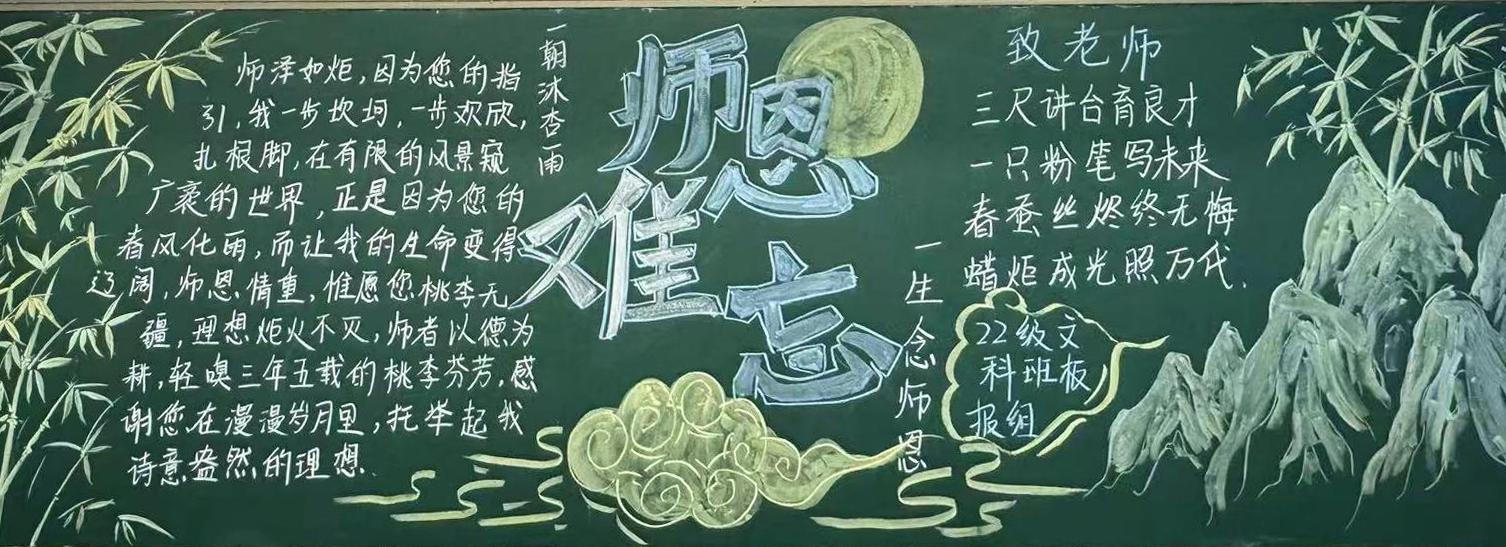 师泽如炬，因为您的指
引，我一步坎坷，一步欢欣，
扎根脚，在有限的风景窥
广袤的世界，正是因为您的
春风化雨，而让我的生命变得
辽阔，师恩情重，惟愿您桃李无
疆，理想炬火不灭，师者以德为
耕，轻嗅三年五载的桃李芬芳，感
谢您在漫漫岁月里，托举起我
诗意盎然的理想.
一朝沐杏雨
师恩
难忘
一生念师恩
致老师
三尺讲台育良才
一只粉笔写未来
春蚕丝烬终无悔
蜡炬成光照万代.
22级文
科班板
报组